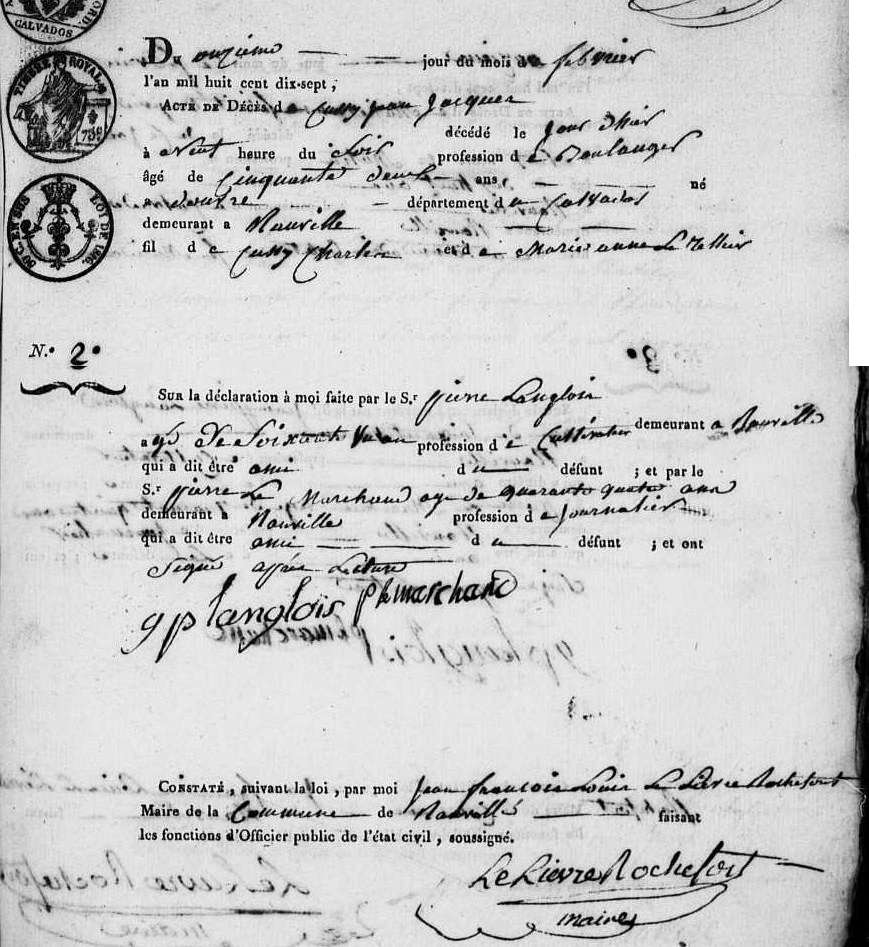 CALVADOS
TIMBRE ROYAL
75 c
LOI DE 1816.
Du onzieme jour du mois de febvrier
l'an mil huit cent dix-sept,
Acte de Décès de Cussy jean Jacques
décédé le jour d'hier
à heure du soir profession de Boulanger
âgé de Cinquante deux ans, né
a douvre département du Calvados
demeurant a Rauville
fil de Cussy Charles et de Marie anne Le Tellier
N.° 2°
Sur la déclaration à moi faite par le S.r pierre Langlois
agé de soixante un an profession de Cultivateur demeurant a Rauville
qui a dit être ami du défunt ; et par le
S.r pierre Le Marchand agé de quarante quatre ans
demeurant a Rauville profession de journalier
qui a dit être ami du défunt ; et ont
Signé après Lecture
gp langlois p lemarchand
Constaté, suivant la loi, par moi jean francois Louis Le Lievre Rochefort
Maire de la Commune de Rauville faisant
les fonctions d'Officier public de l'état civil, soussigné.
Le Lievre Rochefort
maire